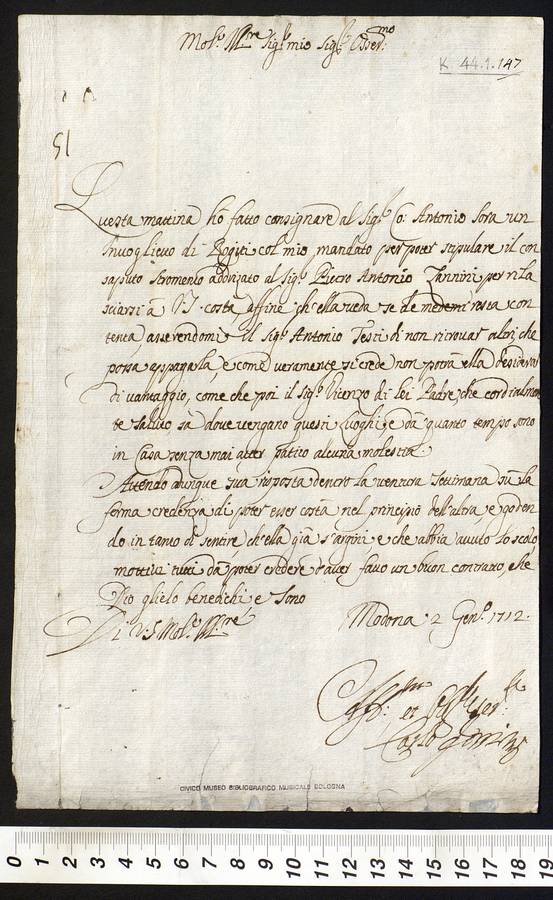 Mol.º Ill.re Sig.r mio Sig.r Osser.mo
K. 44.1.147
51
Questa mattina hò fatto consignare al Sig.r Co: Antonio Sora un
Invoglietto di Rogiti col mio mandato per poter stipulare il con
saputo Stromento adrizato al Sig.r Pietro Antonio Zannini per rila
sciarsi à V.S. costà, affine ch'ella veda se de medemi resta con
tenta, asserendomi il Sig.r Antonio Testi di non ritrovar altri, che
possa appagarla, e come veramente si crede non potrà ella desiderar
di vantaggio, come che poi il Sig.r Vicenzo di lei Padre, che cordialmen
te saluto, sà dove vengano questi Luoghi, e da quanto tempo sono
in Casa senza mai aver patito alcuna molestia.
Attendo dunque sua risposta dentro la ventura Settimana sù la
ferma credenza di poter esser costà nel principio dell'altra, e goden
do in tanto di sentire ch'ella già s'argini e che abbia avuto lo scolo
mottivi tutti da poter credere d'aver fatto un buon contratto, che
Dio glielo benedichi e Sono
Di V.S. Mol.º Ill.re
Modona 2 Gen.º 1712.
Aff.mo et Ser.re
Carlo
CIVICO MUSEO BIBLIOGRAFICO MUSICALE BOLOGNA
0 1 2 3 4 5 6 7 8 9 10 11 12 13 14 15 16 17 18 19